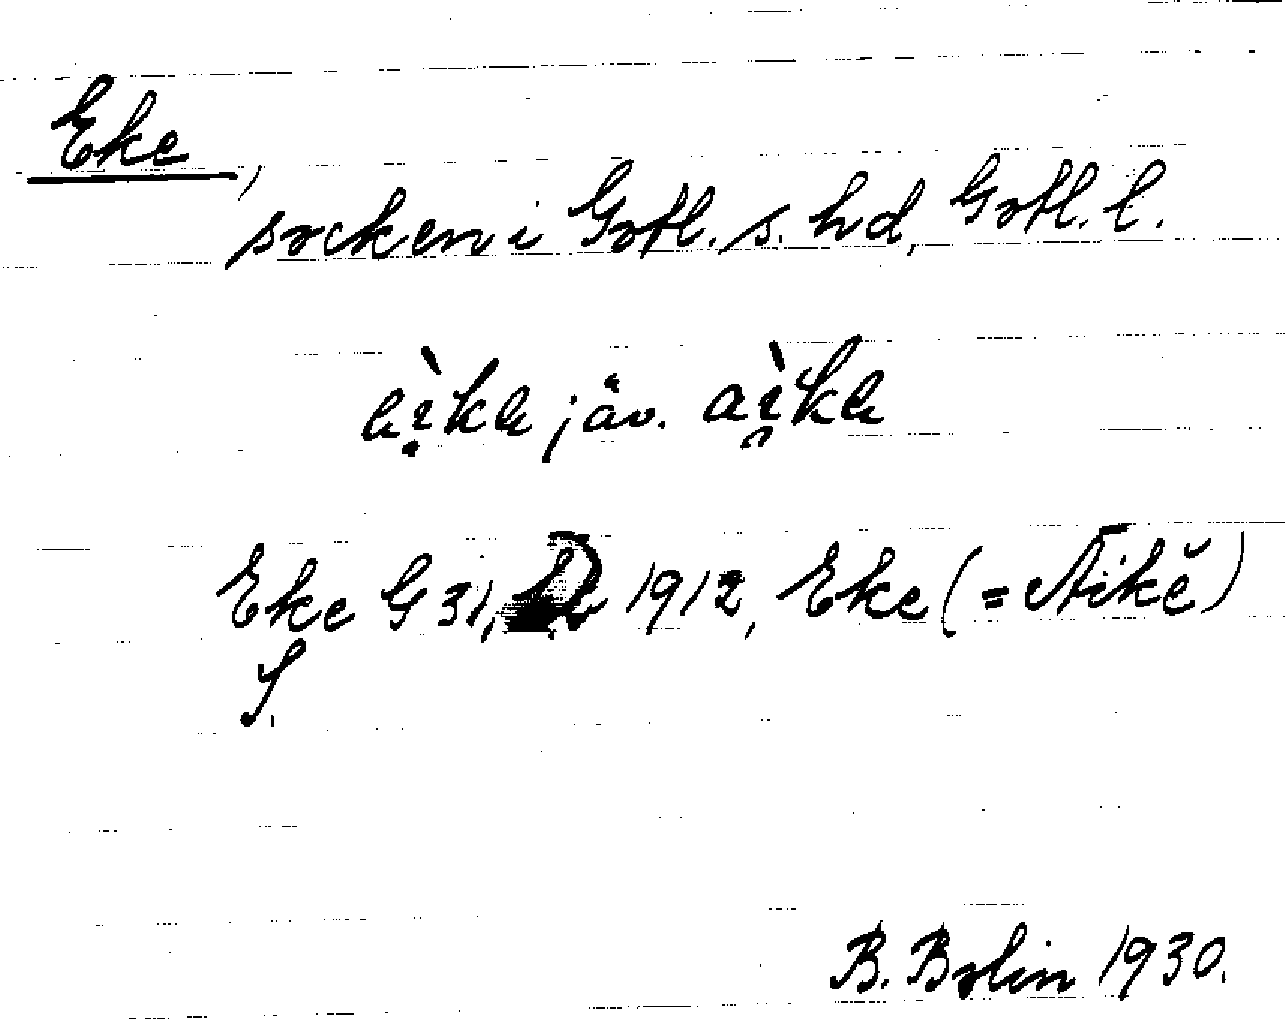 Eke,
socken i Gotl. s. hd, Gotl. l.
jäv.
Eke G 31, 1912, Eke (= Äikĕ)
S.
B. Bolin 1930.